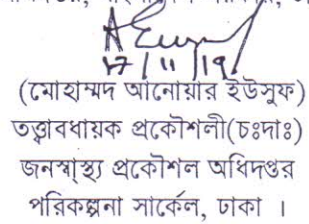 17/11/19
(মোহাম্মদ আনোয়ার ইউসুফ)
তত্ত্বাবধায়ক প্রকৌশলী(চঃদাঃ)
জনস্বাস্থ্য প্রকৌশল অধিদপ্তর
পরিকল্পনা সার্কেল, ঢাকা ।